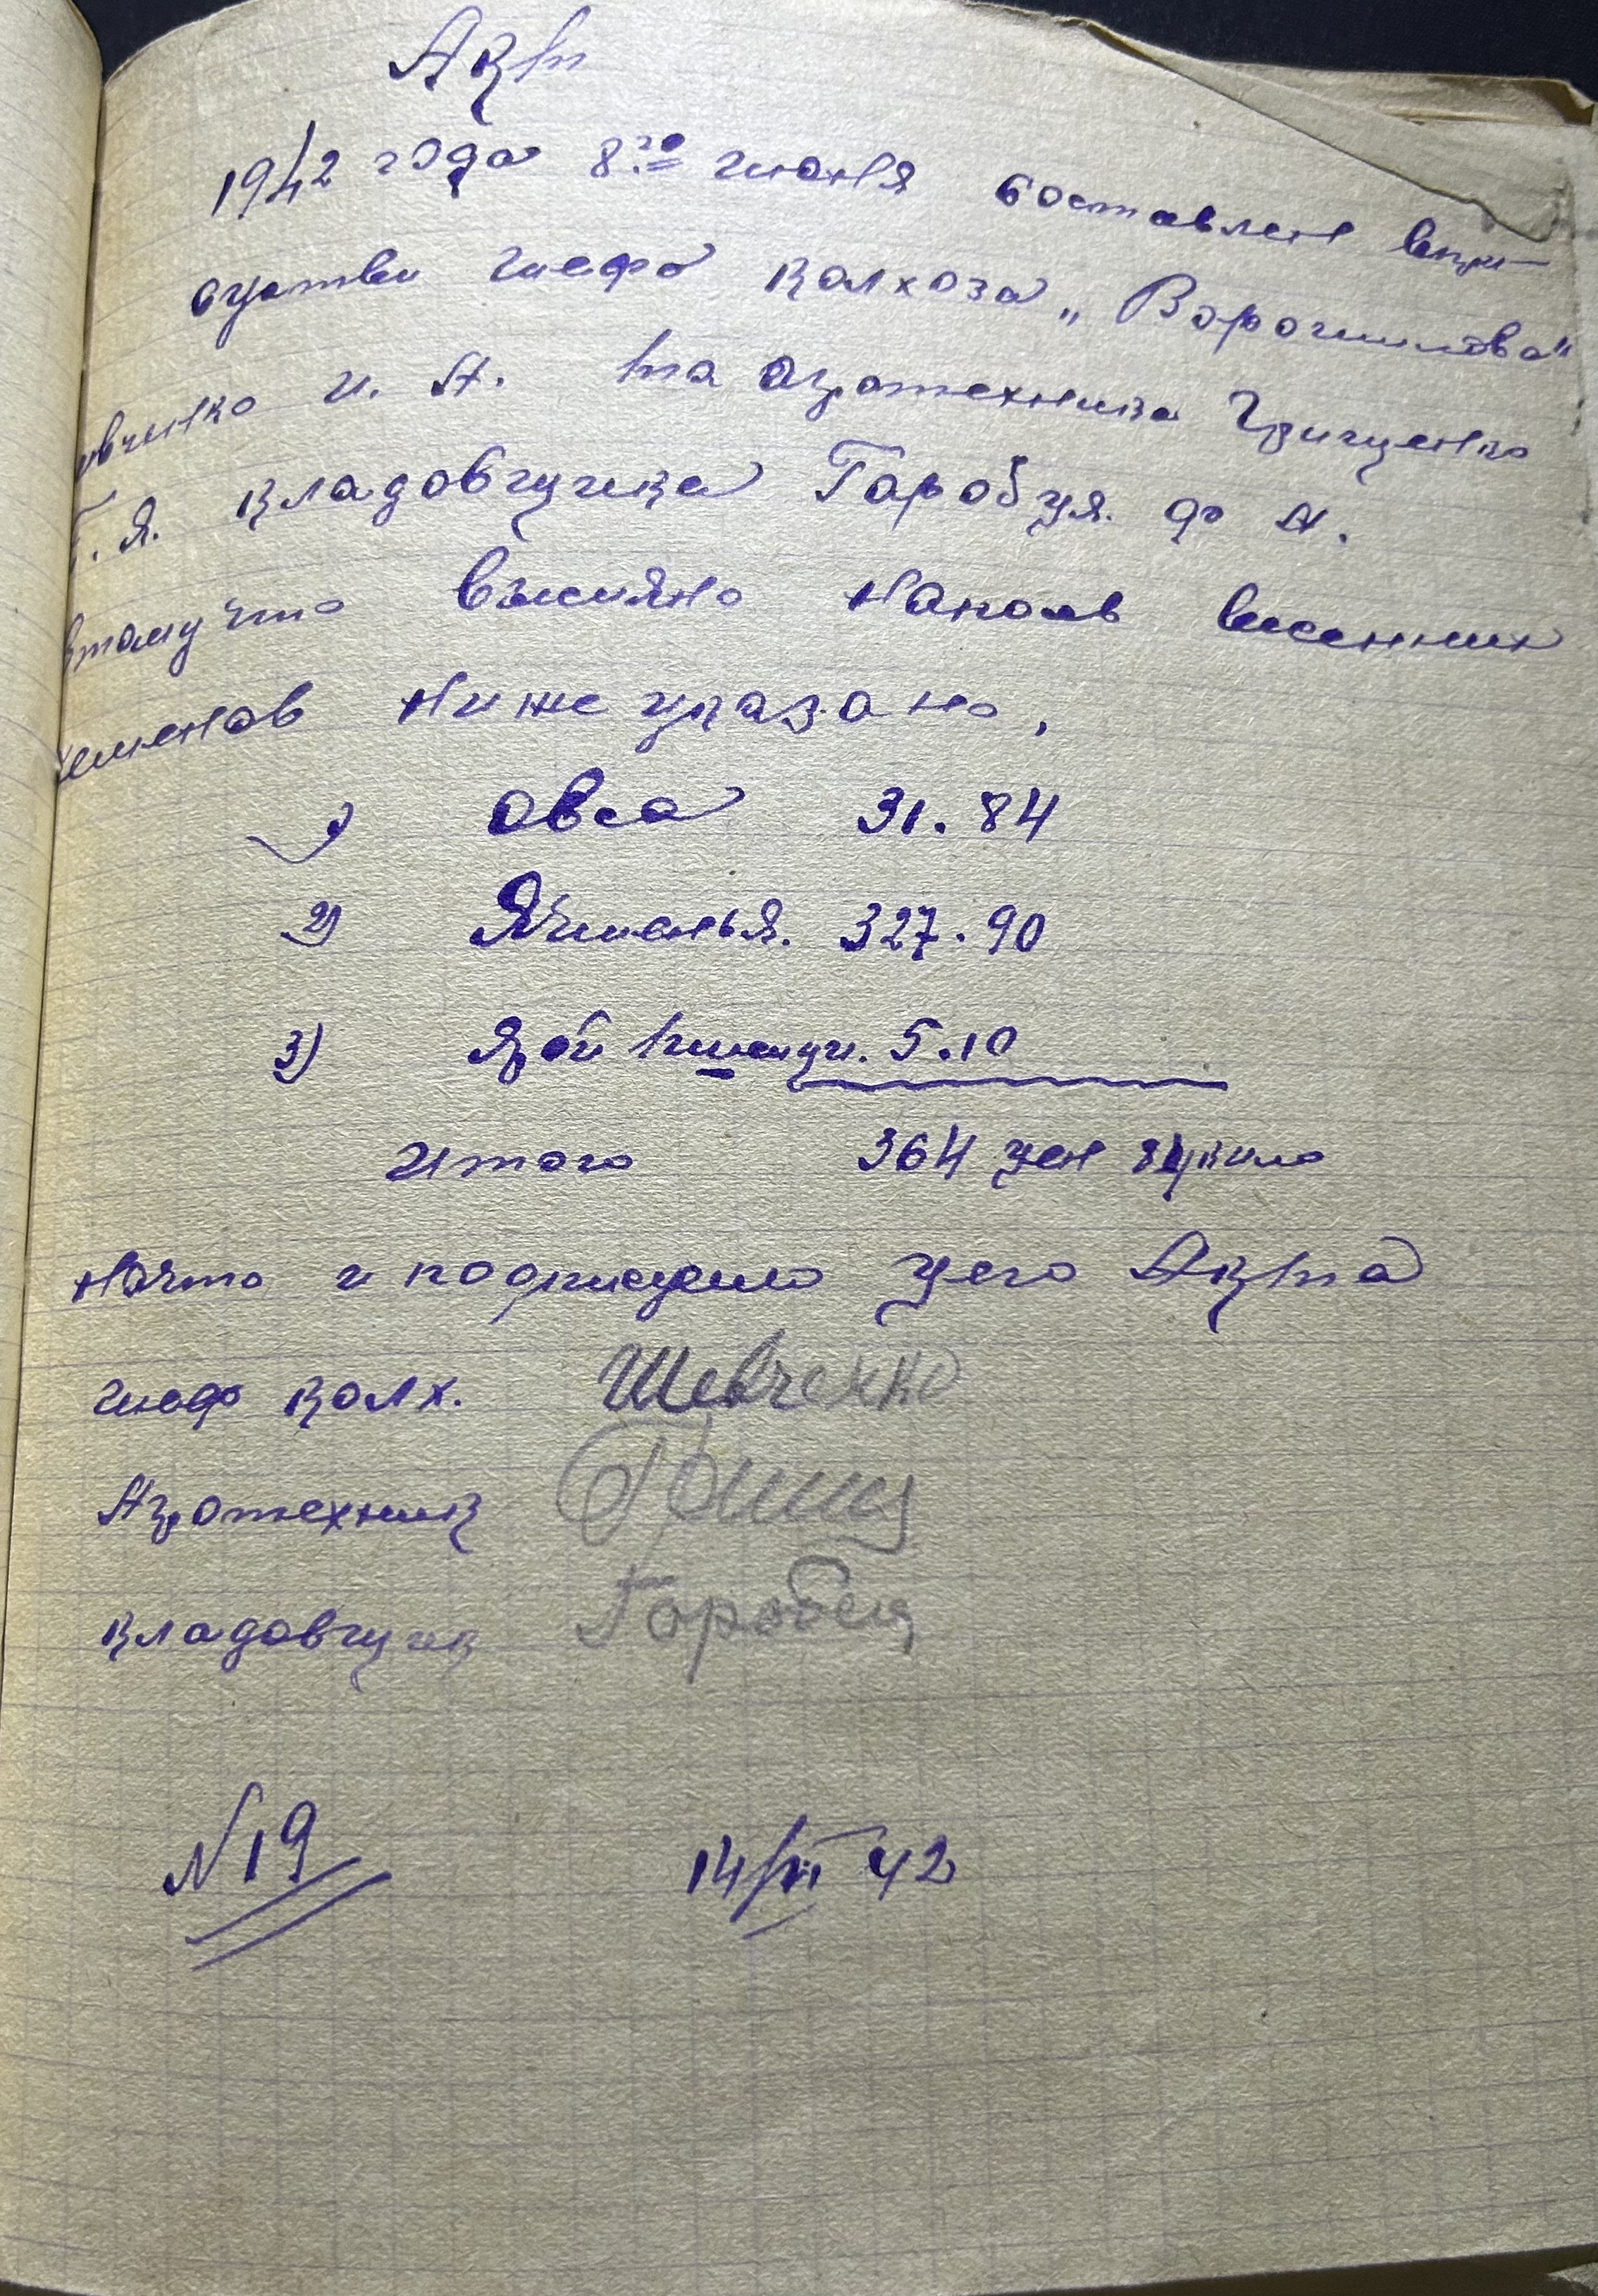 Акт
1942 года 8го июня составлен впри-
суствии шефа колхоза „Ворошилова"
евченко И. А. та агротехника Грищенко
Г. Я. кладовщика Горобця. Ф А.
втому что высияно наполв весенних
семенов ниже указано,
1) овса 31.84
2) Ячменья. 327.90
3) Яро й пшениці. 5.10
Итого 364 цен 84 кило
на что и подписуемо цего Акта
шеф колх. Шевченко
Агротехник Грищ
кладовщик Горобец
N 19 14/VI 42